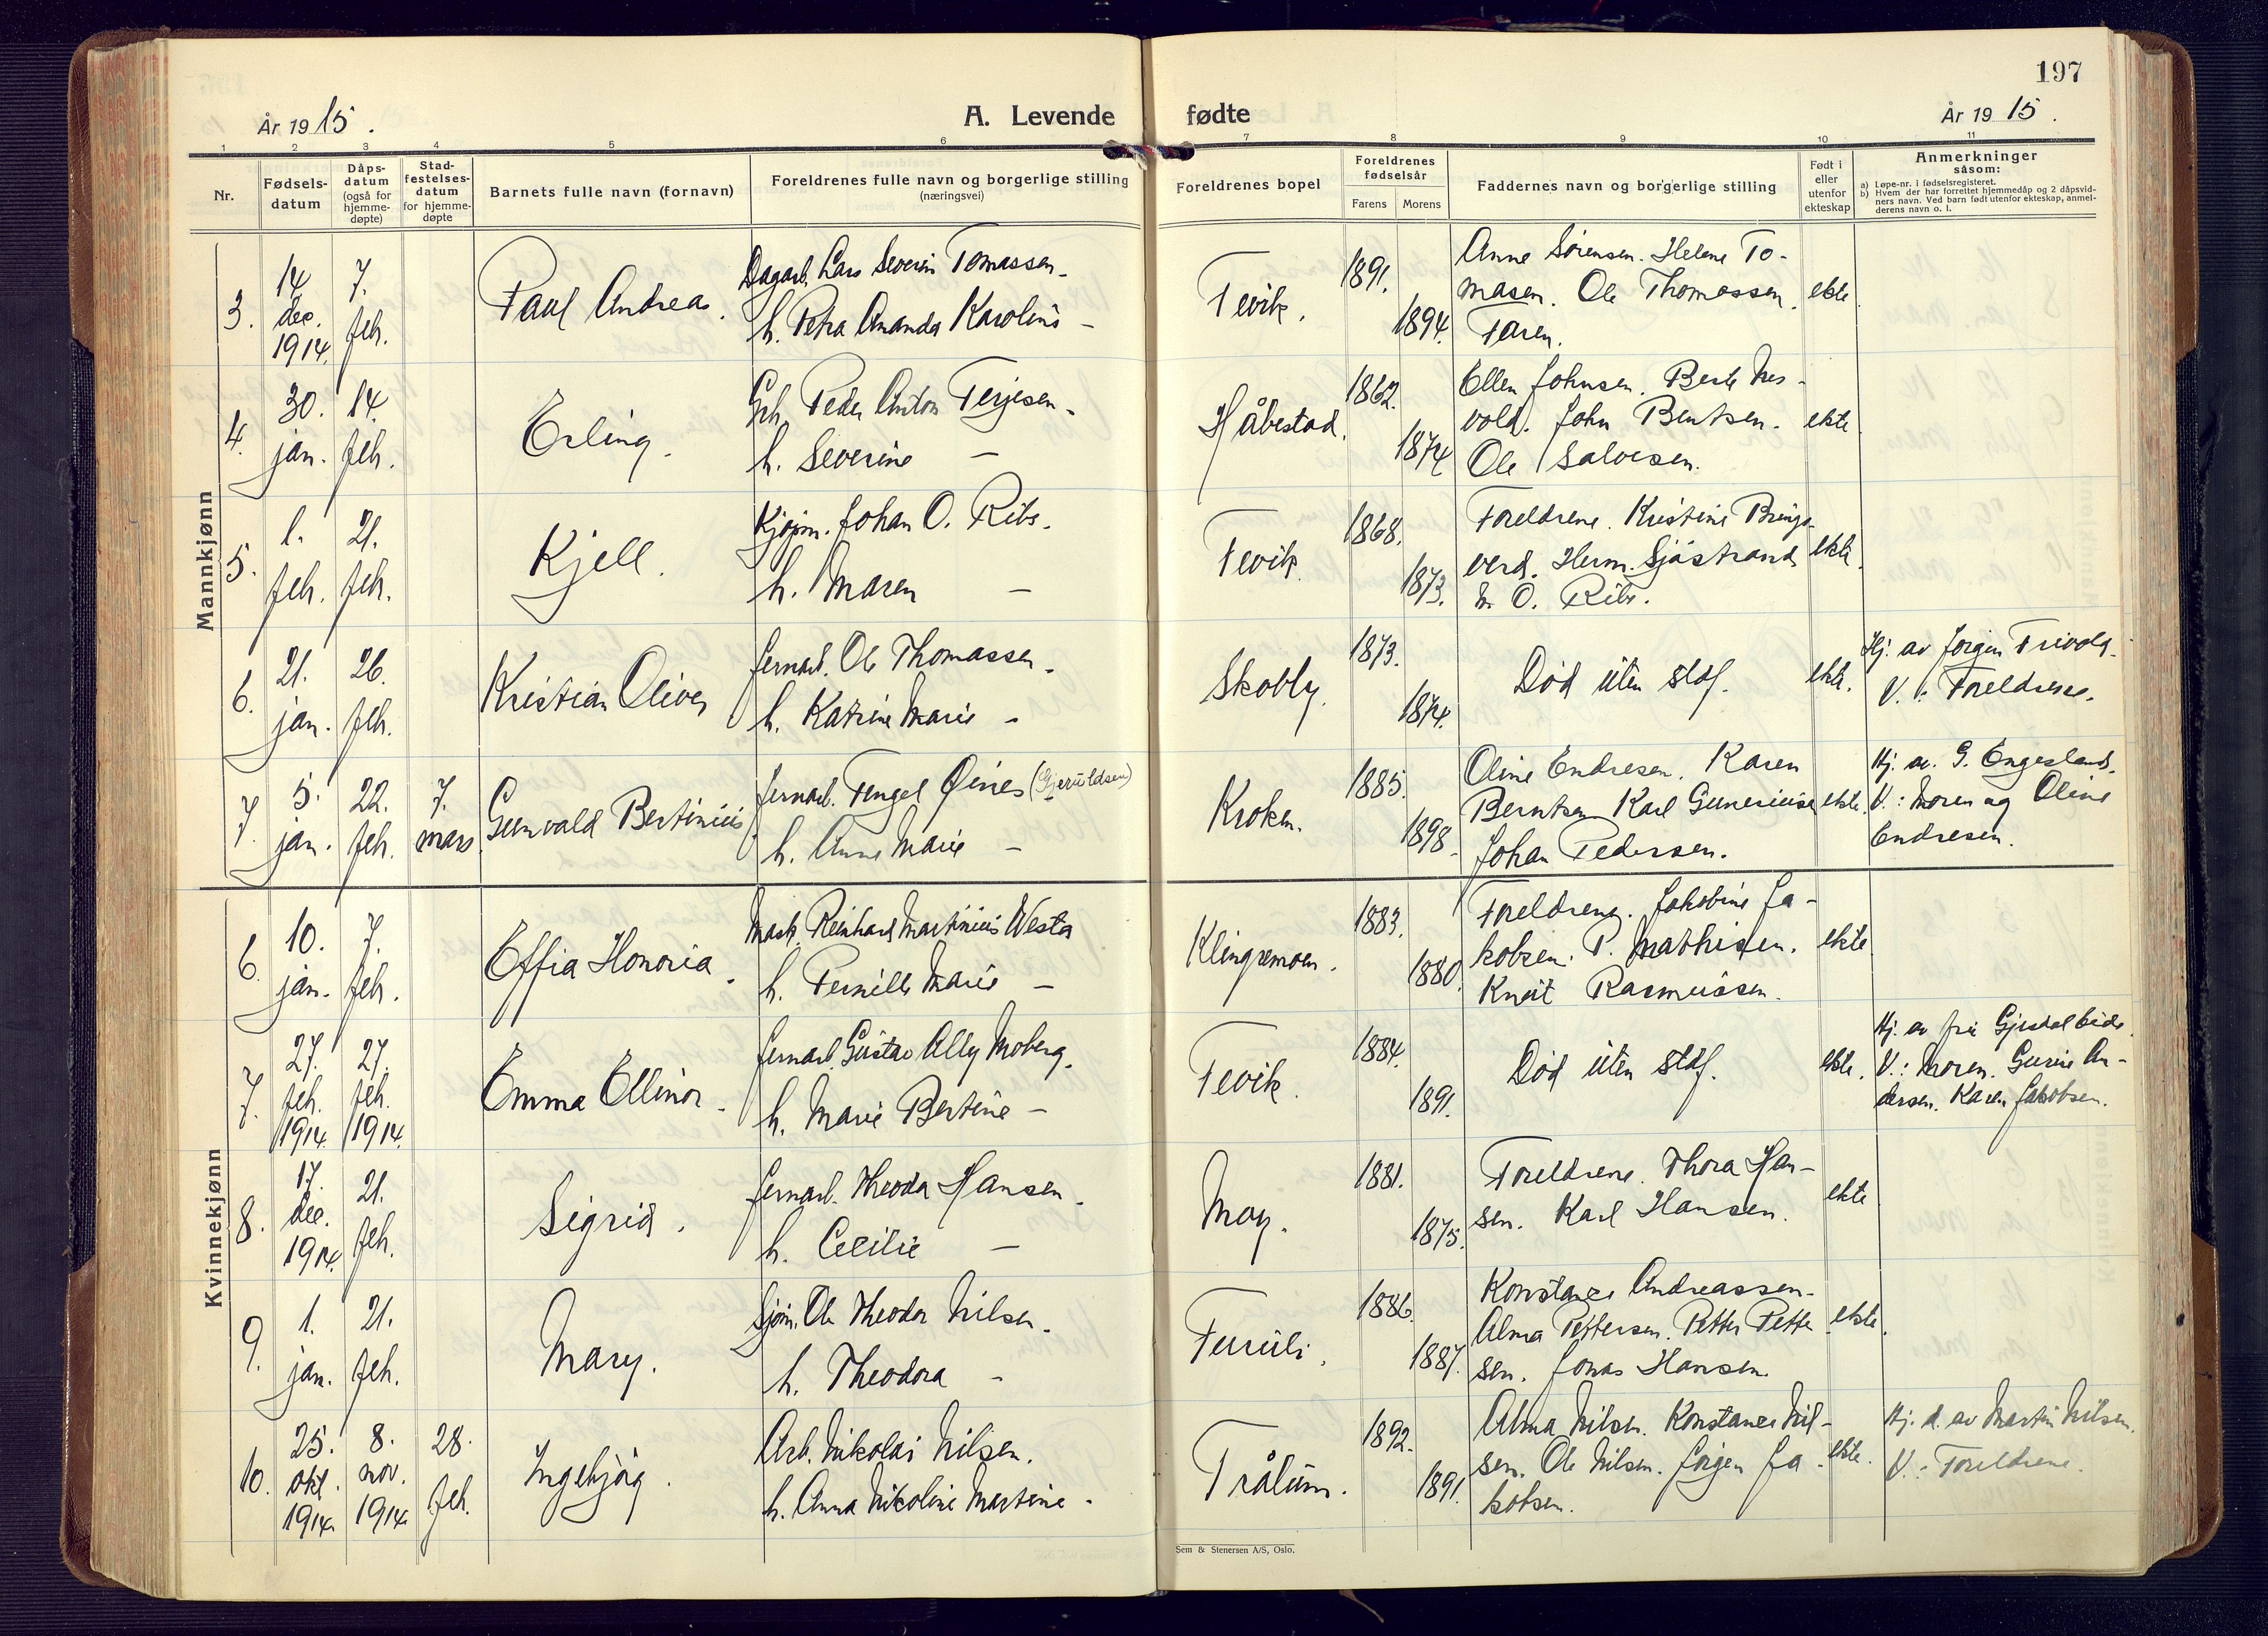 197
År 1915.
A. Levende fødte
År 1915.
1 2 3 4 5 6 7 8 9 10 11
Nr.
Fødsels-
datum
Dåps-
datum
(også for
hjemme-
døpte)
Stad-
festelses-
datum
for hjemme-
døpte
Barnets fulle navn (fornavn)
Foreldrenes fulle navn og borgerlige stilling
(næringsvei)
Foreldrenes bopel
Foreldrenes
fødselsår
Farens
Morens
Faddernes navn og borgerlige stilling
Født i
eller
utenfor
ekteskap
Anmerkninger
såsom:
a) Løpe-nr. i fødselsregisteret.
b) Hvem der har forrettet hjemmedåp og 2 dåpsvid-
ners navn. Ved barn født utenfor ekteskap, anmel-
derens navn o. l.
Mannkjønn
3.
14.
dec.
1914.
7.
feb.
Paul Andreas.
Dagarb. Lars Severin Tomassen -
h. Petra Amanda Karoline -
Fevik.
1891.
1894.
Anne Sørensen. Helene To-
masen. Ole Thomassen.
Faren.
ekte.
4.
30.
jan.
14.
feb.
Erling.
Grb. Peder Anton Terjesen -
h. Severine -
Håbestad.
1862.
1874
Ellen Johnsen. Berte Nes-
vold. John Bentsen.
Ole Salvesen.
ekte.
5.
1.
feb.
21.
feb.
Kjell.
Kjøpm. Johan O. Ribe.
h. Maren -
Fevik.
1868.
1873.
Foreldrene. Kristine Brings-
verd. Herm. Sjåstrand
M. O. Ribe.
ekte.
6.
21.
jan.
26.
feb.
Kristian Oliver
Jernarb. Ole Thomassen.
h. Katrine Marie -
Skobly.
1873.
1874.
Død uten stdf.
ekte.
Hj. av Jørgen Frivold.
V.: Foreldrene.
7.
5.
jan.
22.
feb.
7.
mars
Gunvald Bertinius
Jernarb. Tengel Øines (Gjeruldsen)
h. Anne Marie -
Kroken.
1885.
1898.
Oline Endresen. Karen
Berntsen Karl Guneriussen
Johan Pedersen.
ekte.
Hj. av. G. Engesland.
V.: Moren og Oline
Endresen.
Kvinnekjønn
6.
10.
jan.
7.
feb.
Effia Honoria.
Mask. Reinhard Martinius Westa
h. Pernille Marie -
Klingremoen.
1883.
1880.
Foreldrene. Jakobine Ja-
kobsen. P. Mathisen.
Knut Rasmussen.
ekte
7.
27.
feb.
1914.
27.
feb.
1914.
Emma Ellinor.
Jernarb. Gustav Ally Moberg.
h. Marie Bertine -
Fevik.
1884.
1891.
Død uten stdf.
ekte.
Hj. av fru
V.: Moren. Gurine An-
dersen. Karen Jakobsen.
8.
17.
dec.
1914.
21.
feb.
Sigrid.
Jernarb. Theodor Hansen.
h. Cecilie -
Moy.
1881.
1875.
Foreldrene. Thora Han-
sen. Karl Hansen.
ekte
9.
1.
jan.
21.
feb.
Mary.
Sjøm. Ole Theodor Nilsen.
h. Theodora -
Furuli.
1886.
1887.
Konstance Andreassen -
Alma Pettersen. Petter Petter
sen. Jonas Hansen.
ekte.
10.
25.
okt.
1914.
8.
nov.
1914
28.
feb.
Ingebjørg.
Arb. Nikolai Nilsen.
h. Anna Nikoline Martine -
Trålum.
1892.
1891.
Alma Nilsen. Konstance Nil-
sen. Ole Nilsen. Jørgen Ja-
kobsen.
ekte.
Hj. d. av Martin Nilsen.
V.: Foreldrene.
Sem & Stenersen A/S, Oslo.